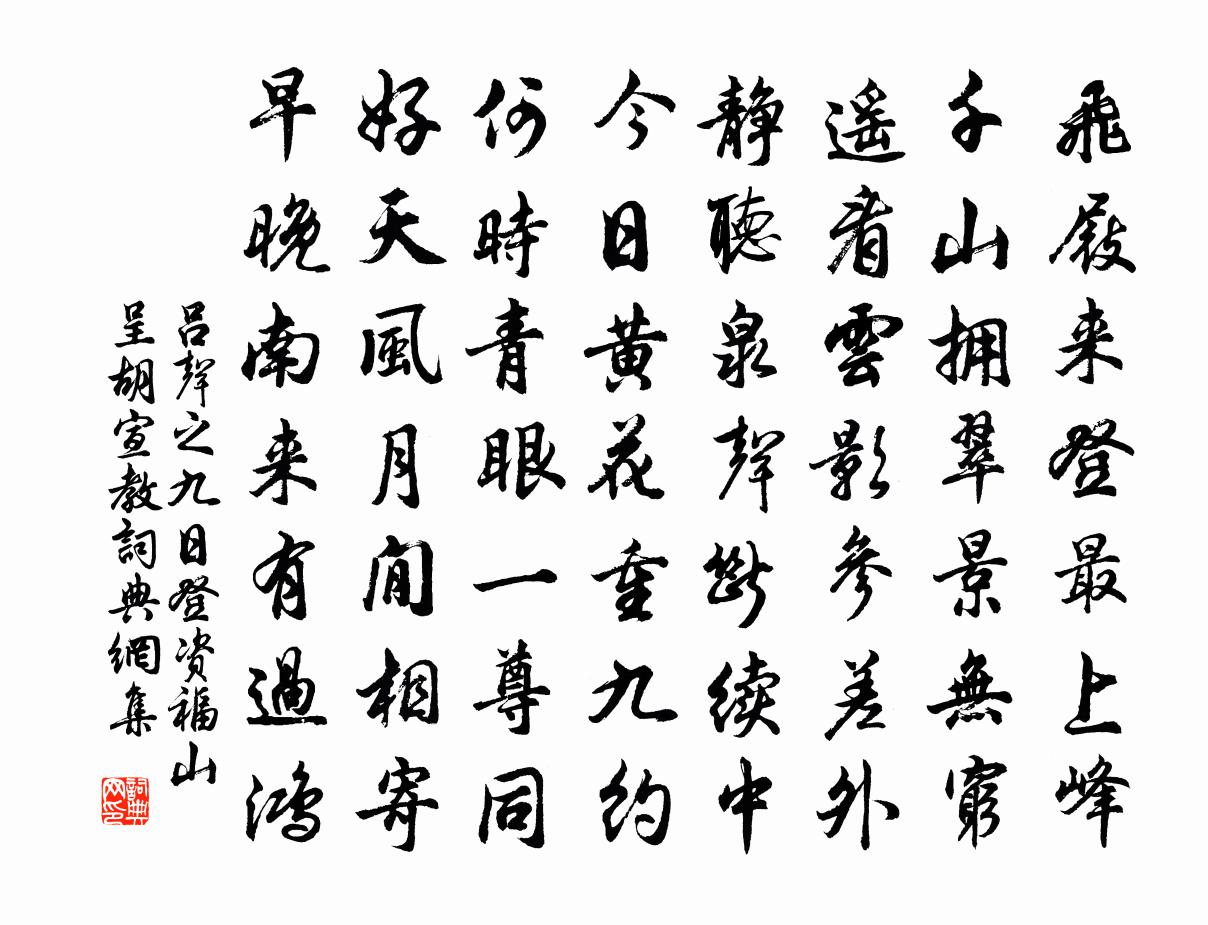 飛屐来登最上峰
千山拥翠景無窮
遥看雲影參差外
静聽泉聲斷续中
今日黄花重九约
何時青眼一尊同
好天風月閒相寄
早晚南来有過鴻
吕聲之九日登资福山
呈胡宣教詞典網集
詞典网印